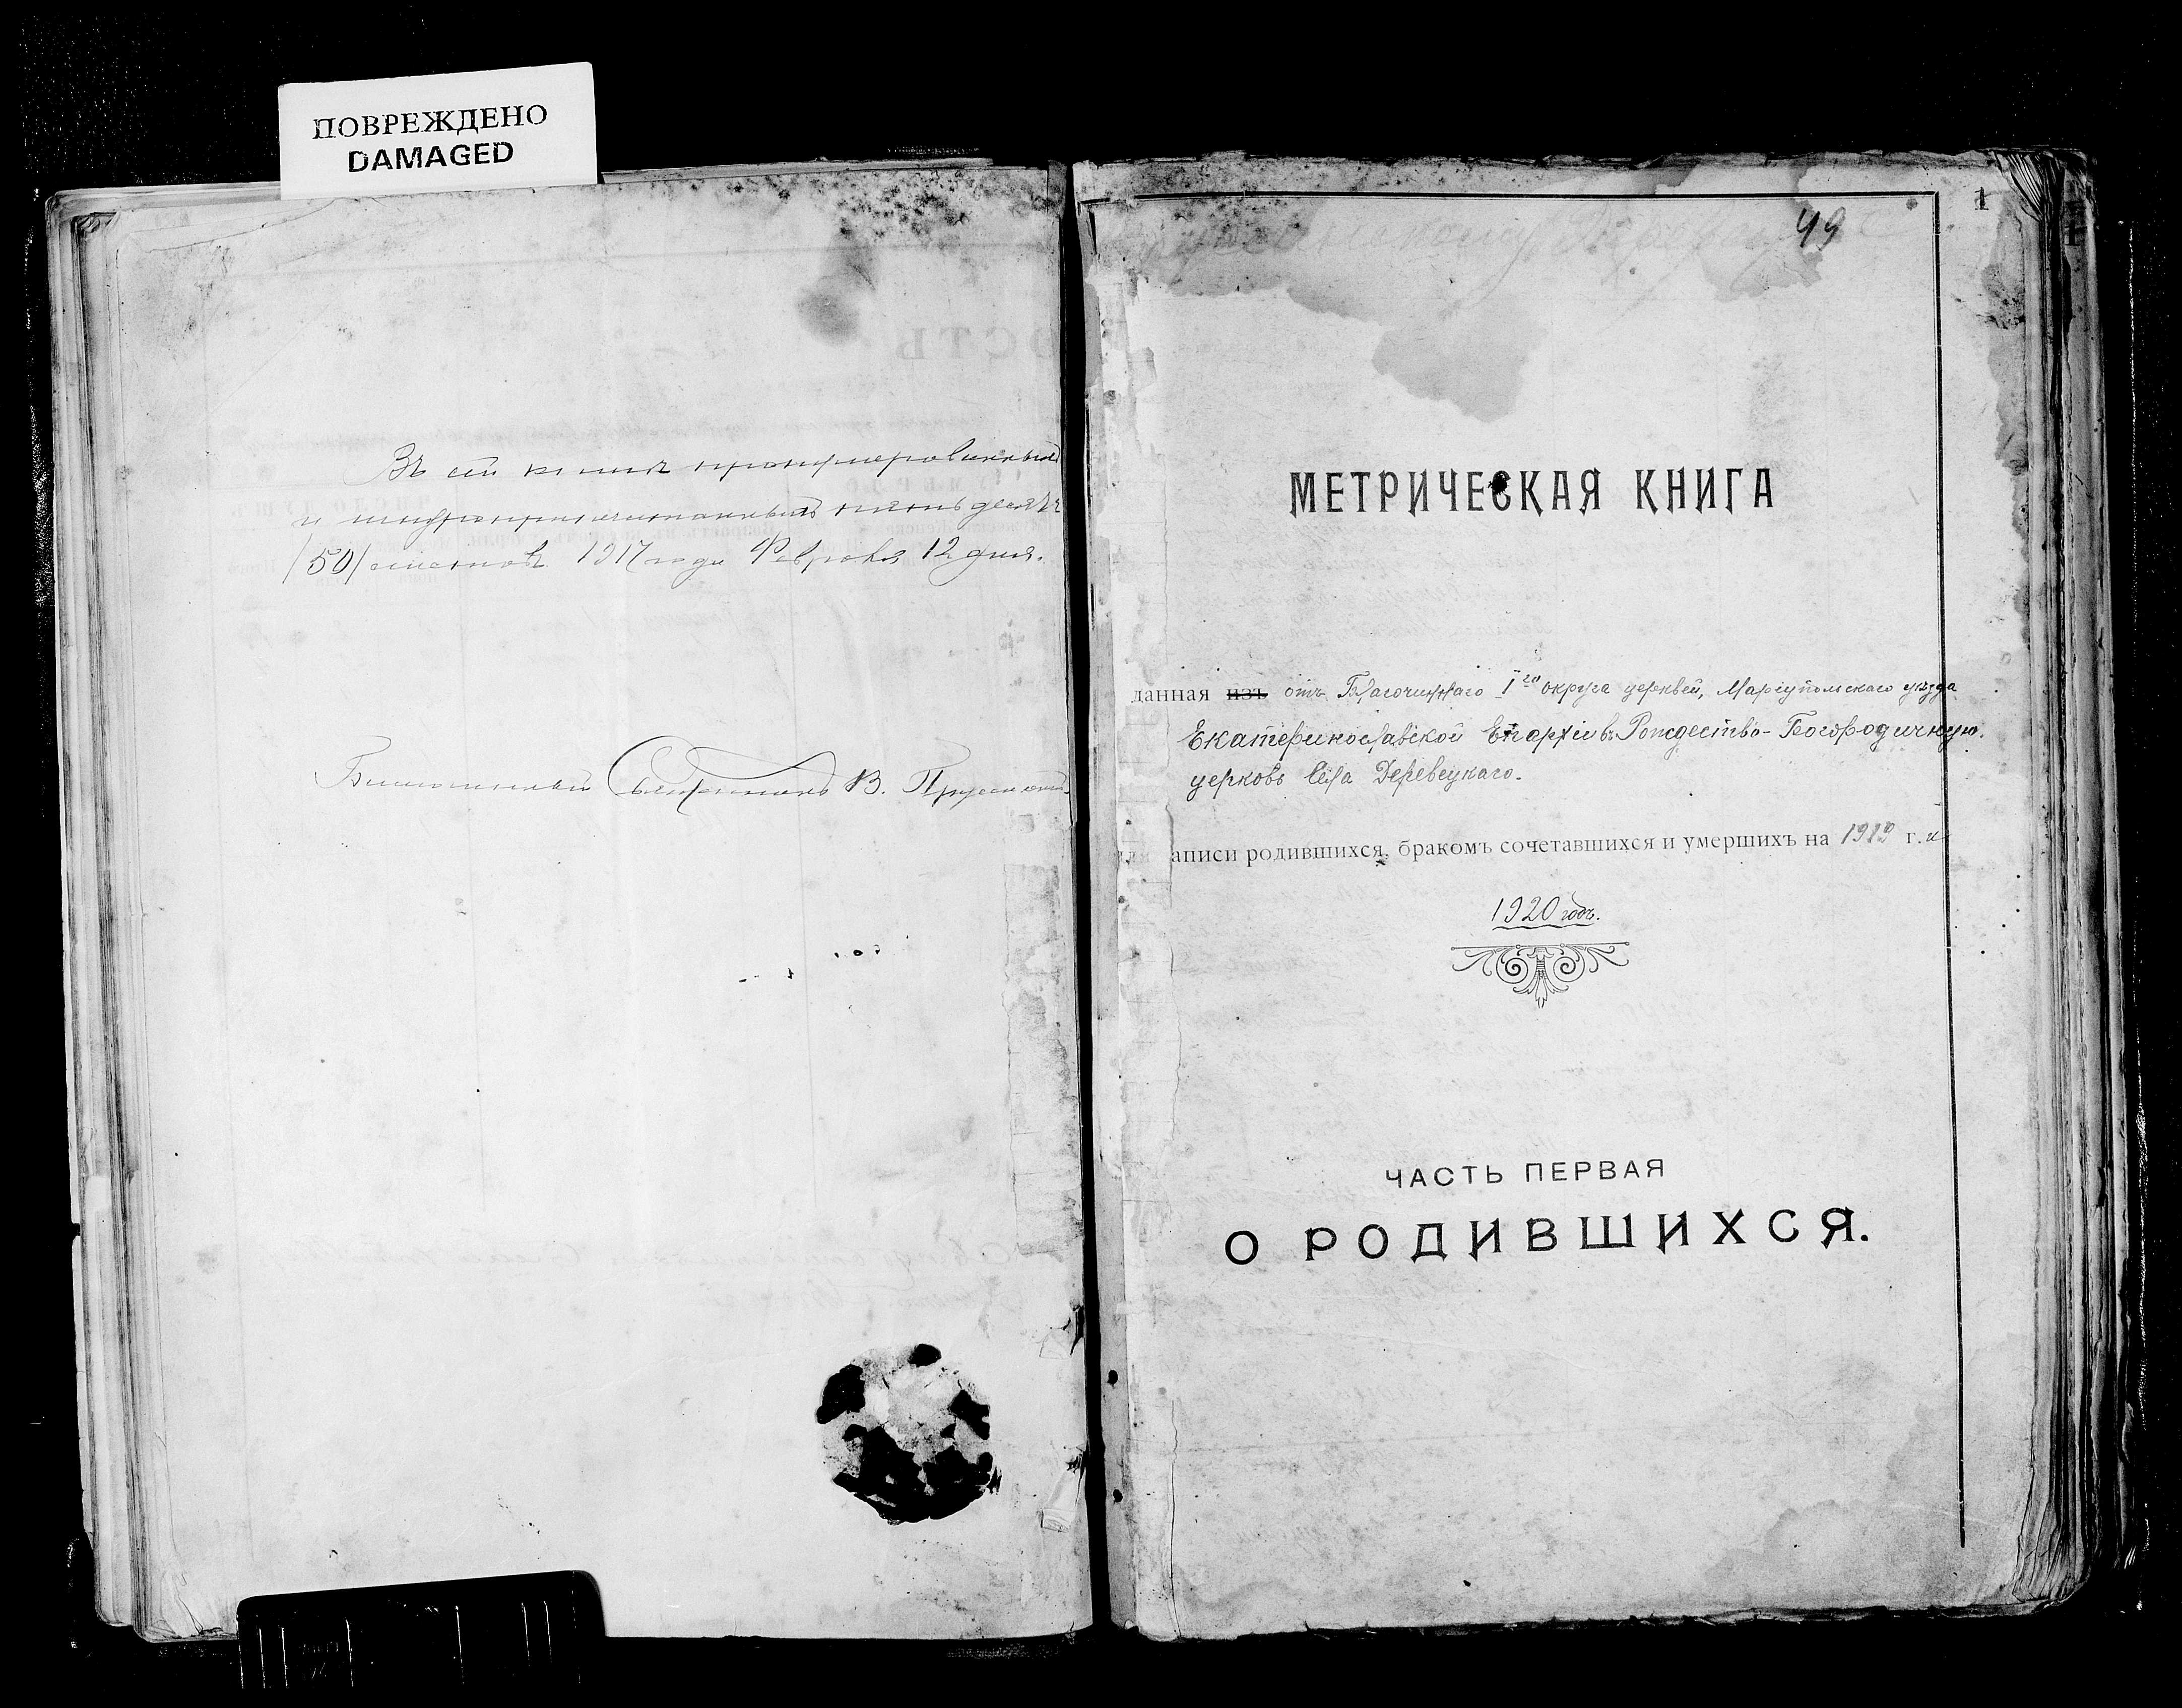 ПОВРЕЖДЕНО
DAMAGED
Въ сей книгѣ пронумерованныхъ
и шнуроприпечатанныхъ пятьдесятъ
/50/ листовъ 1917 года Февраля 12 дня.
Благочинный Священникъ В.
1
49
МЕТРИЧЕСКАЯ КНИГА
данная изъ отъ Благочиннаго I го округа церквей, Маріупольскаго уѣзда
Екатеринославской Епархіи въ Рождество-Богородичную
церковь Села Деревецкаго.
для записи родившихся, бракомъ сочетавшихся и умершихъ на 1919 г. и
1920 годъ.
ЧАСТЬ ПЕРВАЯ
О РОДИВШИХСЯ.